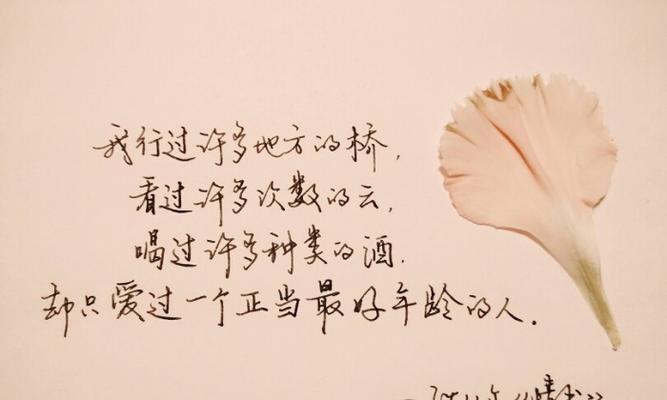 我行过许多地方的桥，
看过许多次数的云，
喝过许多种类的酒.
却只爱过一个正当最好年龄的人.